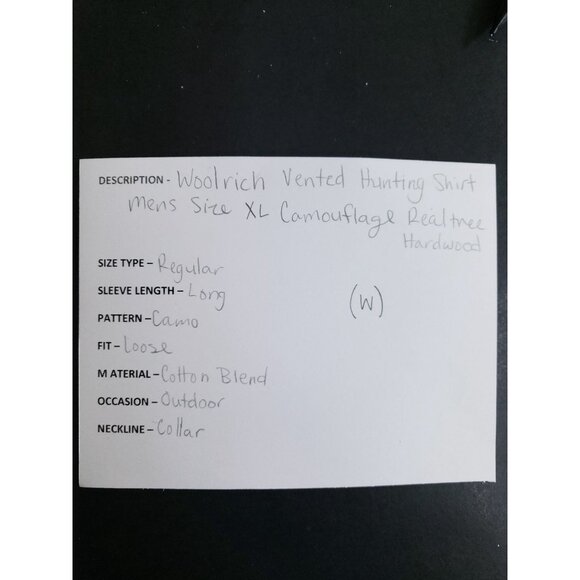 DESCRIPTION - Woolrich Vented Hunting Shirt
Mens Size XL Camouflage Realtree
Hardwood
SIZE TYPE – Regular
SLEEVE LENGTH – Long
(W)
PATTERN – Camo
FIT – Loose
MATERIAL – Cotton Blend
OCCASION – Outdoor
NECKLINE – Collar